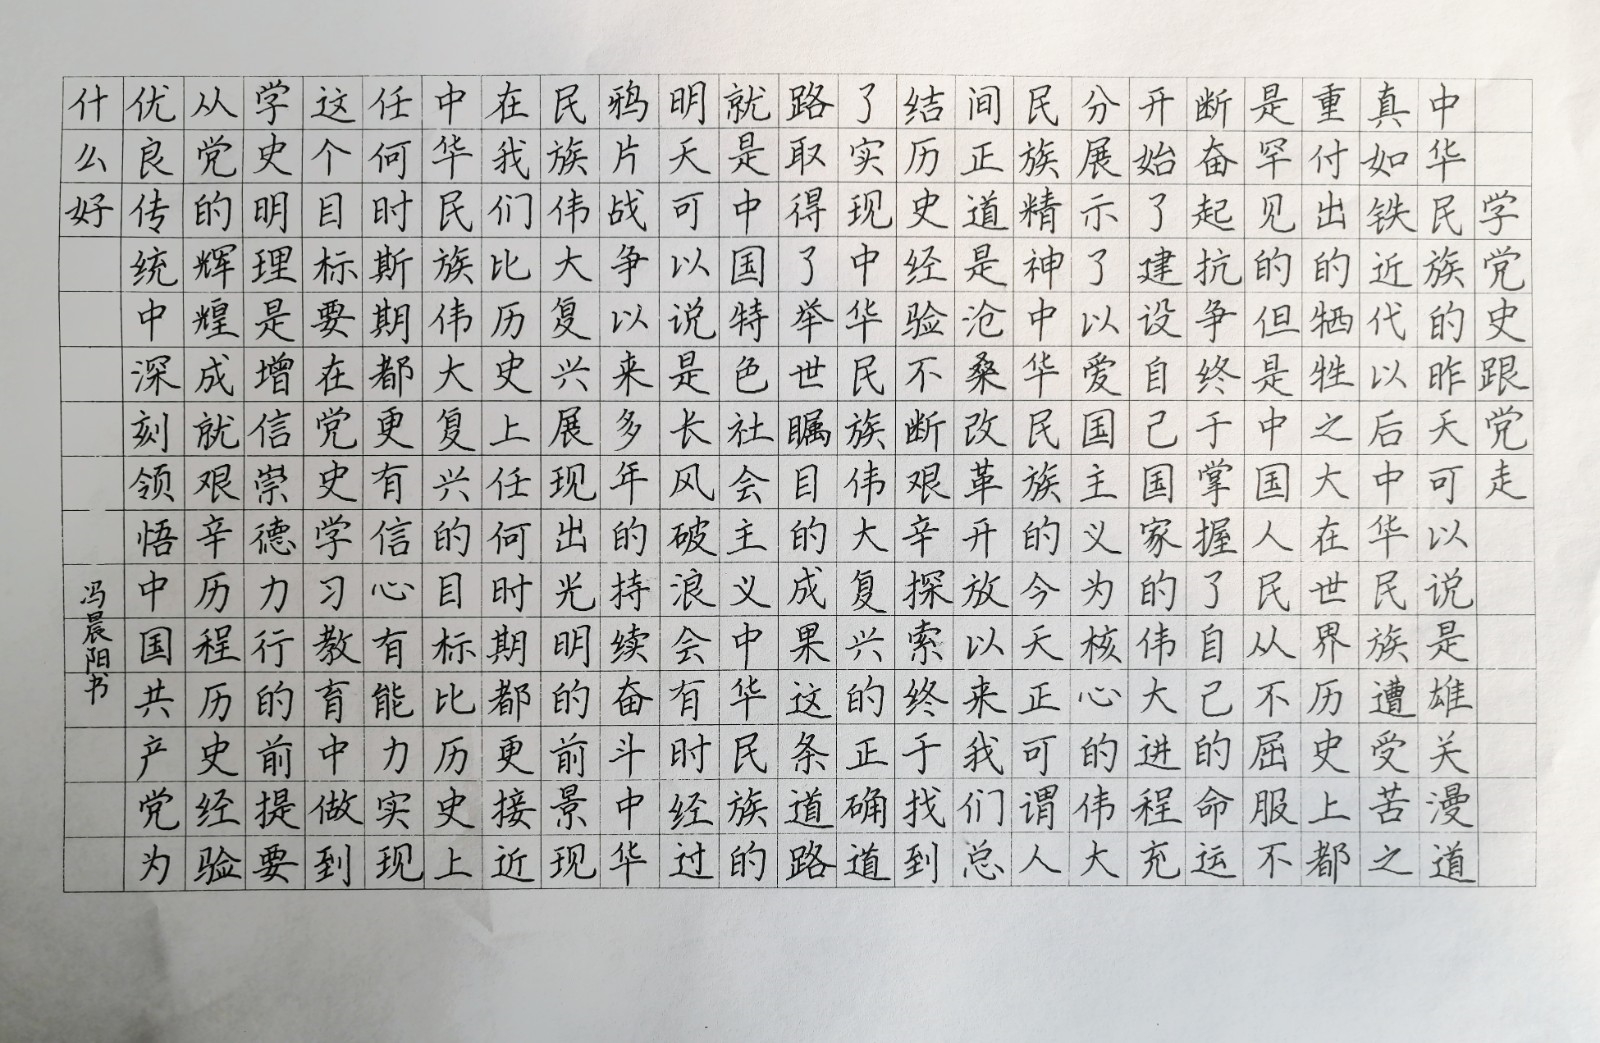 学党史跟党走
中华民族的昨天可以说是雄关漫道
真如铁近代以后中华民族遭受苦之
重付出的牺牲之大在世界历史上都
是罕见的但是中国人民从不屈服不
断奋起抗争终于掌握了自己的命运
开始了建设自己国家的伟大进程充
分展示了以爱国主义为核心的伟大
民族精神中华民族的今天正可谓人
间正道是沧桑改革开放以来我们总
结历史经验不断艰辛探索终于找到
了实现中华民族伟大复兴的正确道
路取得了举世瞩目的成果这条道路
就是中国特色社会主义中华民族的
明天可以说是长风破浪会有时经过
鸦片战争以来多年的持续奋斗中华
民族伟大复兴展现出光明的前景现
在我们比历史上任何时期都更接近
中华民族伟大复兴的目标比历史上
任何时斯期都更有信心有能力实现
这个目标要在党史学习教育中做到
学史明理是增信崇德力行的前提要
从党的辉煌成就艰辛历程历史经验
优良传统中深刻领悟中国共产党为
什么好
冯晨阳书